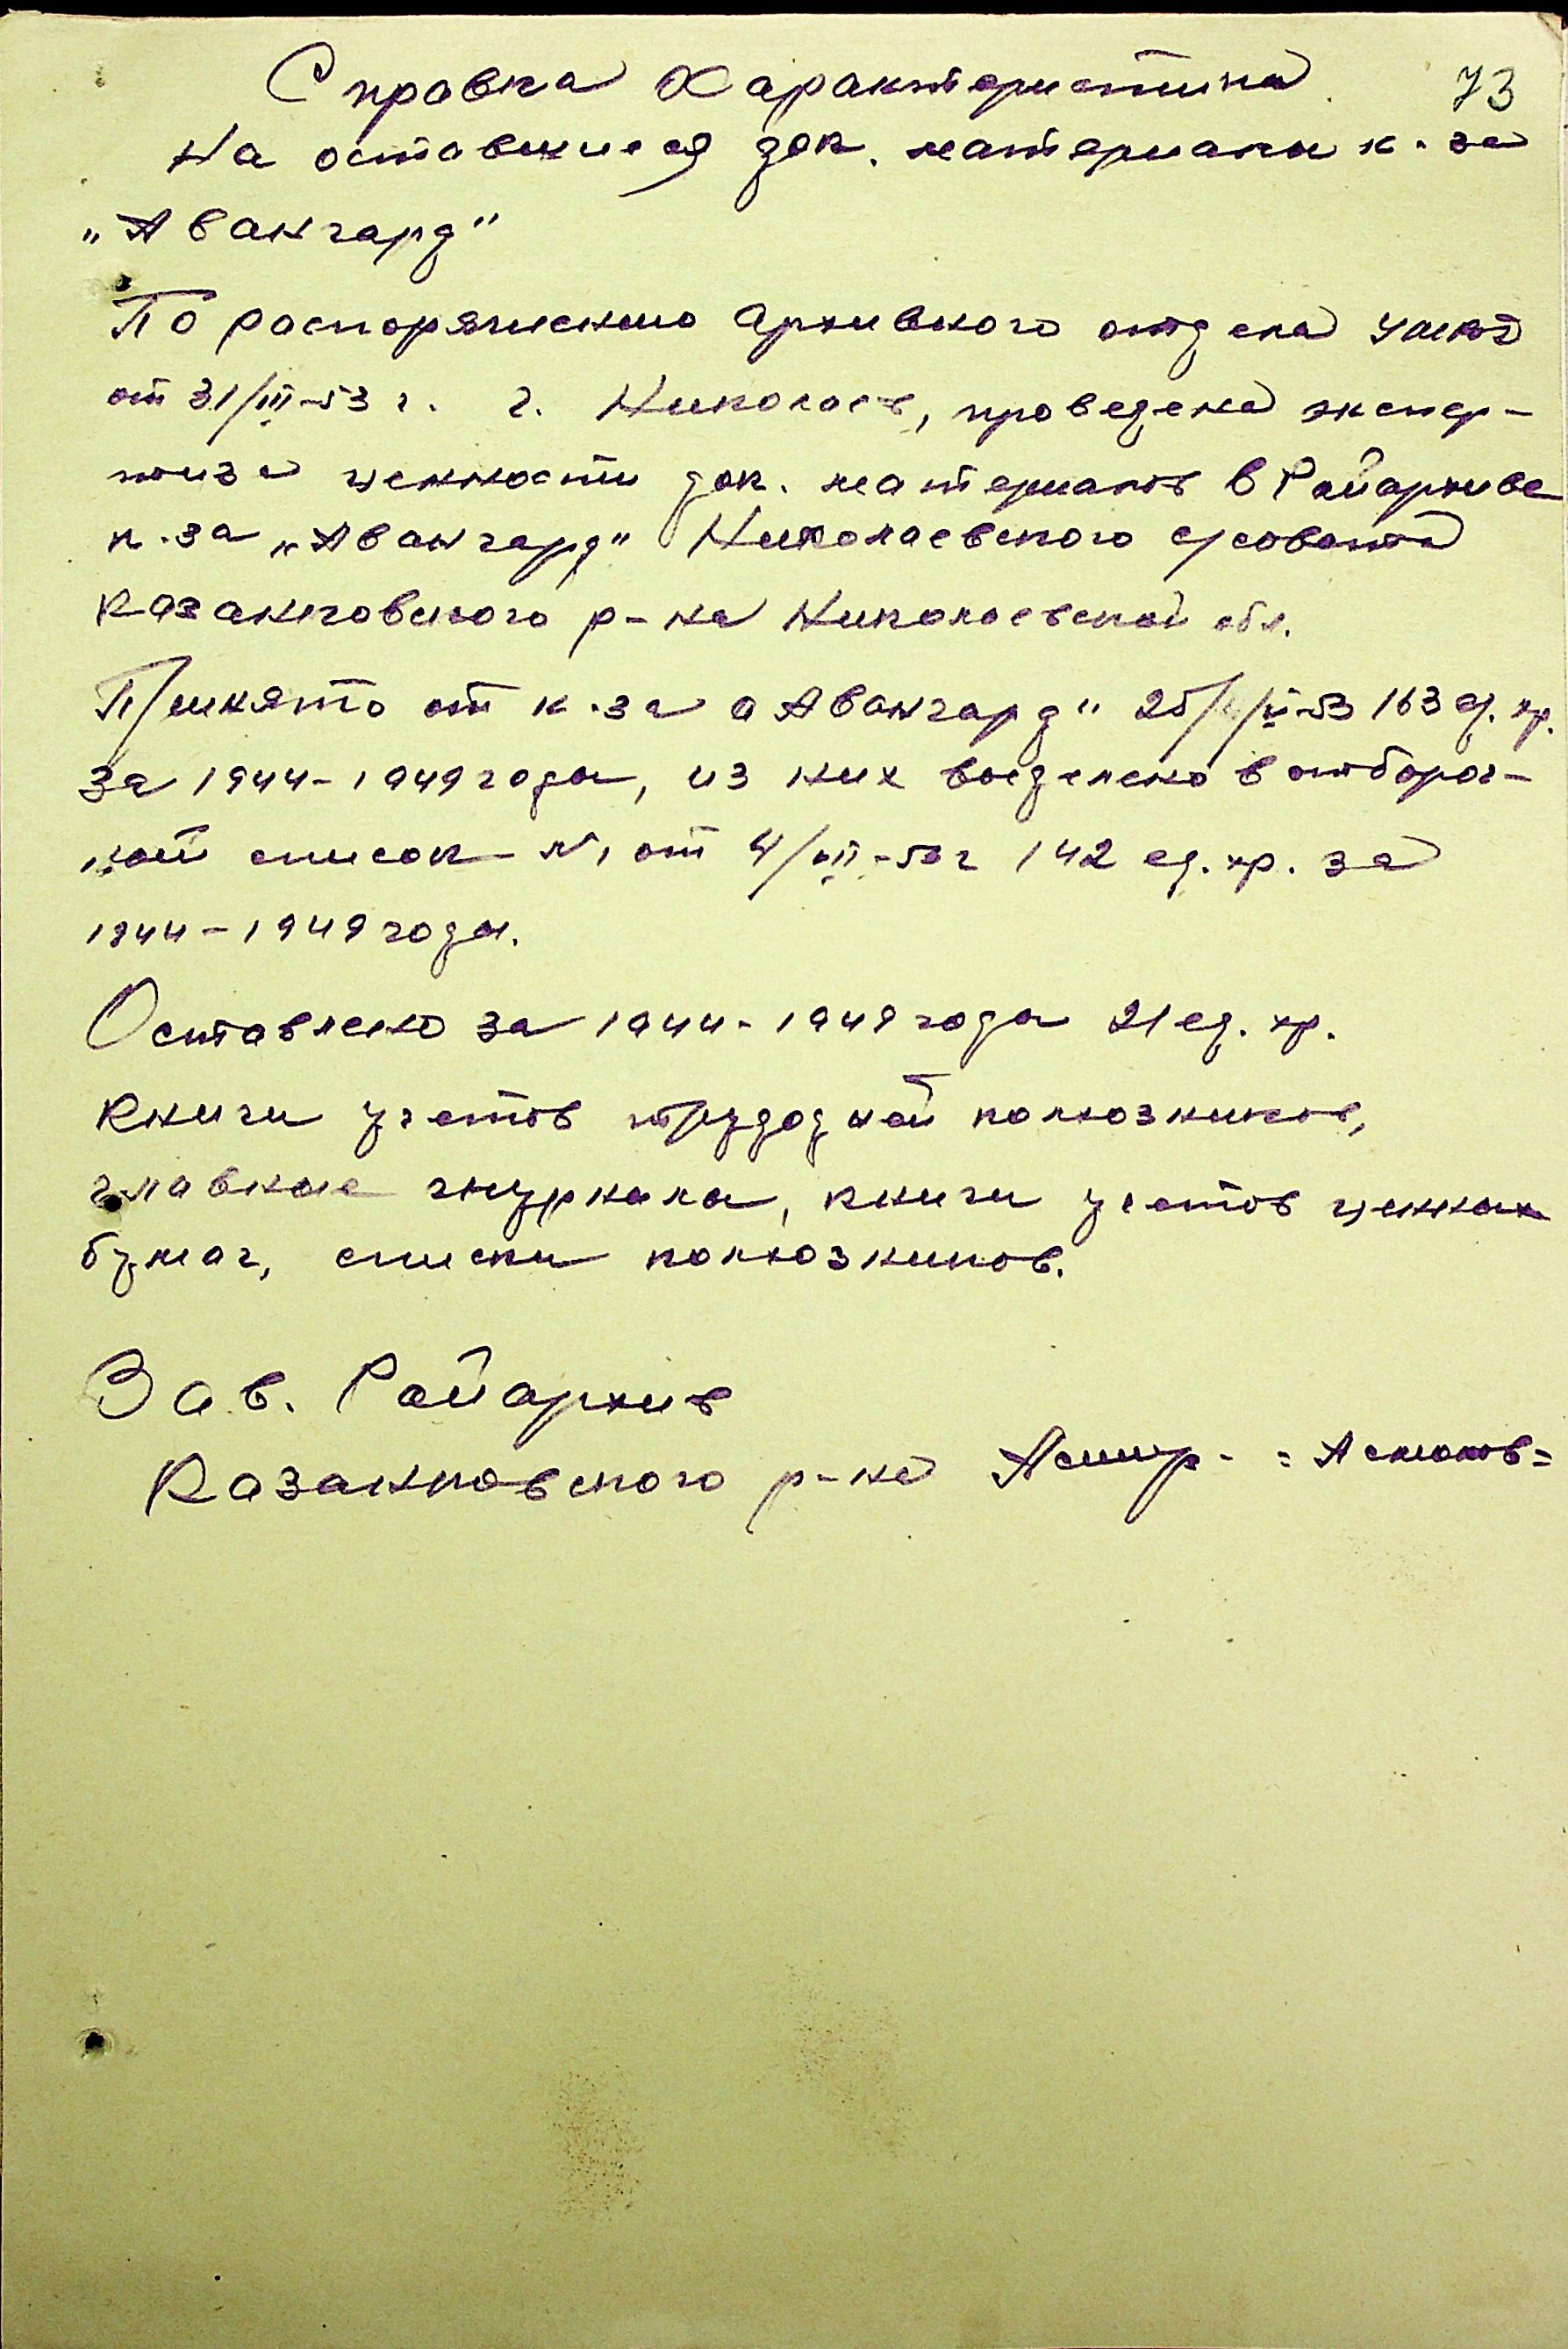 Справка Характеристика 73
на оставшиеся док. материалы к-за
„Авангард"
По распоряжению Архивного отдела УМВД
от 31/III-53 г. г. Николаев, проведена экспер-
тиза ценности док. материалов в Райархиве
к-за „Авангард" Николаевского с/совета
Казанковского р-на Николаевской обл.
Принято от к-за „Авангард" 163 ед. хр.
за 1944-1949 годы, из них выделено в отбороч-
ный список №1 от 142 ед. хр. за
1944-1949 годы.
Оставлено за 1944-1949 годы 21 ед. хр.
Книги учетов трудодней колхозников,
главные журналы, книги учетов ценных
бумаг, списки колхозников.
Зав. Райархив
Казанковского р-на